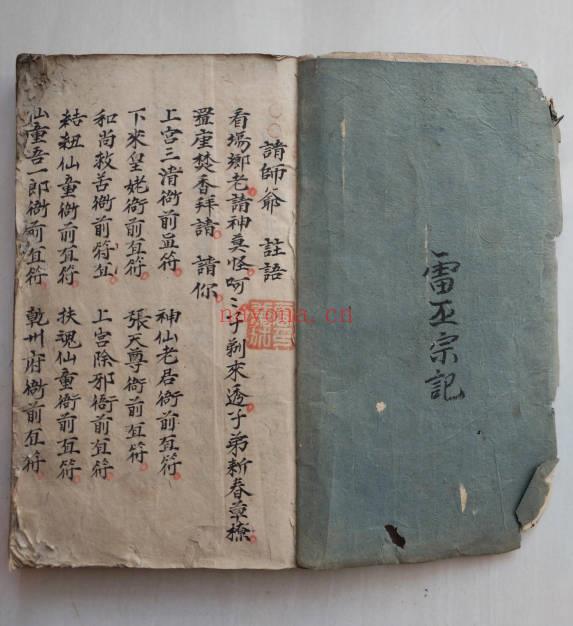 雷巫宗記
請師爺　註語
看塲鄉老請神莫怪呵二寸剃來透子弟新春章撩
罡座焚香拜請　請你
上宮三清衙前直符　神仙老君衙前直符
下來皇姥衙前直符　張天尊衙前直符
和尚救苦衙前符直　上宮除邪衙前直符
結紐仙童衙前直符　扶魂仙童衙前直符
仙童吾一郎衙前直符　乾州府衙前直符
nayona.cn